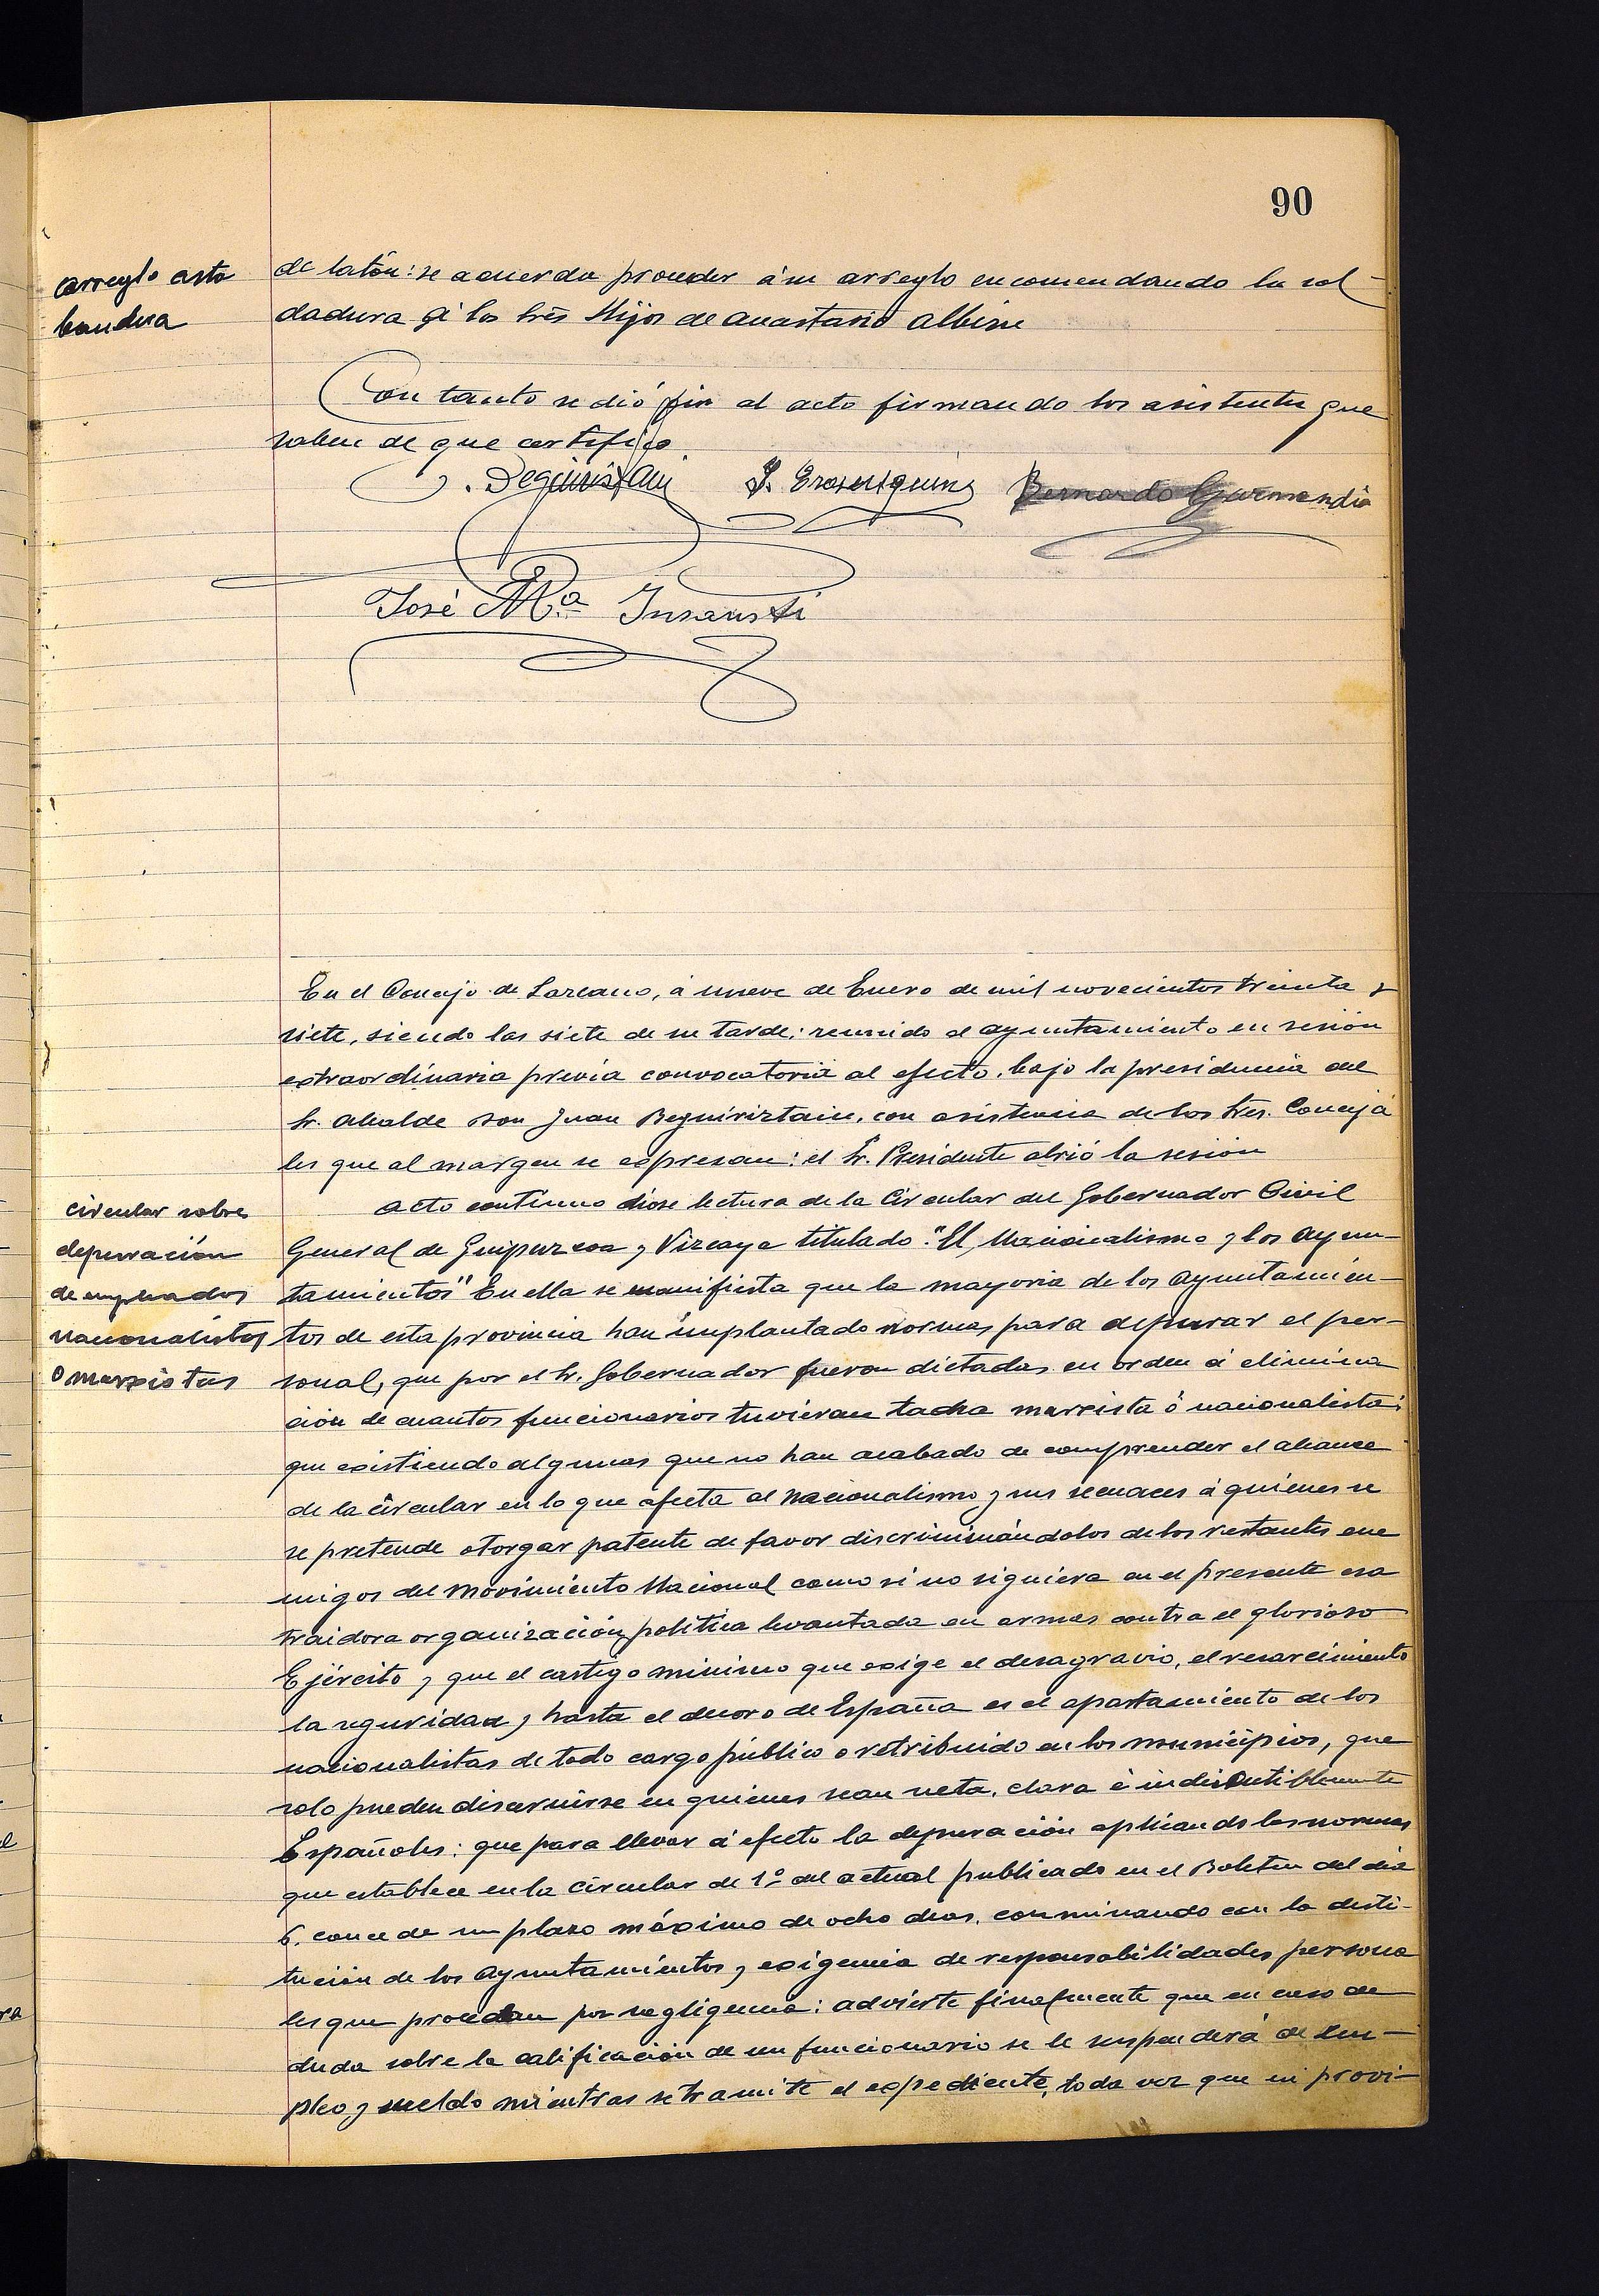 90
arreglo asta
bandera
de latón: se acuerda proceder á su arreglo encomendando la sol-
dadura á los Srēs Hijos de Anastasio Albisu
Con tanto se dió fin al acto firmando los asistentes que
saben de que certifico.
J. Beguiristain
Bernardo Gurmendia
José Mª Insausti
En el Concejo de Lazcano, á nueve de Enero de mil novecientos treinta y
siete, siendo las siete de su tarde: reunido el ayuntamiento en sesión
extraordinaria previa convocatoria al efecto, bajo la presidencia del
Sr. Alcalde Don Juan Beguiriztain, con asistencia de los Sres. Conceja
les que al margen se expresan: el Sr. Presidente abrió la sesión
circular sobre
depuración
de empleados
nacionalistas
o marxistas
Acto contínuo dióse lectura de la Circular del Gobernador Civil
General de Guipuzcoa y Vizcaya titulado "El Nacionalismo y los Ayun-
tamientos" En ella se manifiesta que la mayoria de los Ayuntamien-
tos de esta provincia han implantado normas para depurar el per-
sonal, que por el Sr. Gobernador fueron dictadas en orden á elimina
ción de cuantos funcionarios tuvieran tacha marxista ó nacionalista:
que existiendo algunos que no han acabado de comprender el alcance
de la circular en lo que afecta al Nacionalismo y sus secuaces á quienes se
se pretende otorgar patente de favor discriminándolos de los restantes ene
migos del Movimiento Nacional como si no siguiera en el presente esa
traidora organización política levantada en armas contra el glorioso
Ejército y que el castigo minimo que exige el desagravio, el resarcimiento
la seguridad y hasta el decoro de España es el apartamiento de los
nacionalistas de todo cargo público o retribuido en los municipios, que
solo pueden discernirse en quienes sean neta, clara é indiscutiblemente
Españoles: que para llevar á efecto la depuración aplicando las normas
que establece en la circular de 1º del actual publicado en el Boletin del dia
6. concede un plazo máximo de ocho dias, conminando con la desti-
tución de los Ayuntamientos y exigencia de responsabilidades persona
les que procedan por negligencia: advierte finalmente que en caso de
duda sobre la calificación de un funcionario se le suspenderá de Em-
pleo y sueldo mientras se tramite el expediente, toda vez que ni provi-